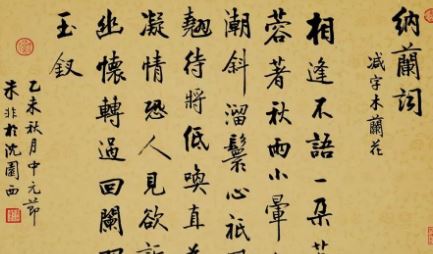 納蘭詞
減字木蘭花
相逢不語一朵芙
蓉著秋雨小暈
潮斜溜鬟心祇
翹待將低喚直
凝情恐人見欲訴
幽懷轉過回闌
玉釵
乙未秋月中元節
朱非於沈園西